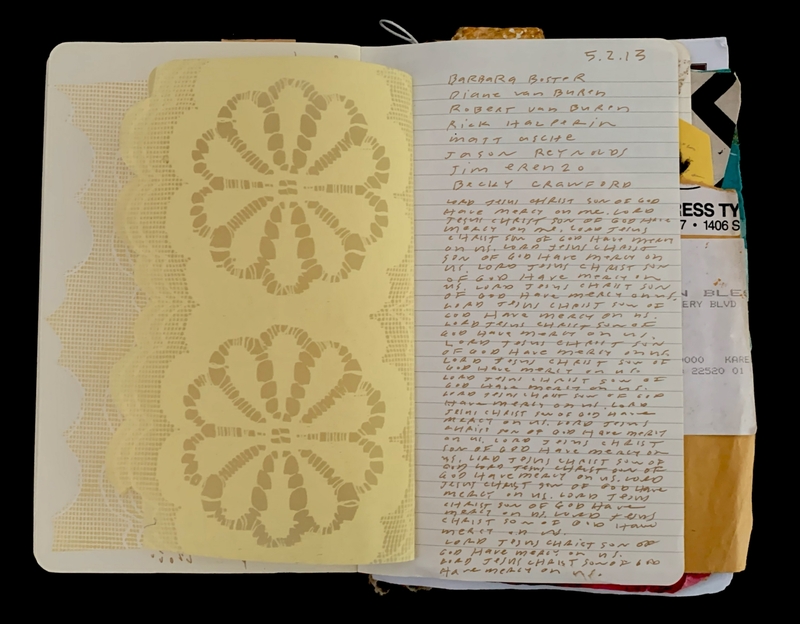 5.2.13
BARBARA BOSTER
Diane van Buren
Robert van Buren
Rick Halperin
matt asche
JASON REYNOLDS
Jim erenzo
Becky CRAWFORD
LORD JESUS CHRIST SON OF GOD
Have mercy on me. LORD
JESUS CHRIST SON OF GOD Have
mercy on me. LORD JESUS
CHRIST SON OF GOD Have mercy
on us. LORD JESUS CHRIST
SON OF GOD Have mercy on
us. LORD JESUS CHRIST SON
OF GOD Have mercy on
us. LORD JESUS CHRIST SON
OF GOD Have mercy on us.
LORD JESUS CHRIST SON OF
GOD Have mercy on us.
LORD JESUS CHRIST SON OF
GOD Have mercy on us.
LORD JESUS CHRIST SON
OF GOD Have mercy on us.
LORD JESUS CHRIST SON OF
GOD Have mercy on us.
LORD JESUS CHRIST SON OF
GOD Have mercy on us.
LORD JESUS CHRIST SON OF GOD
Have mercy on us. LORD
JESUS CHRIST SON OF GOD Have
mercy on us. LORD JESUS
CHRIST SON OF GOD Have mercy
on us. LORD JESUS CHRIST
SON OF GOD Have mercy on
us. LORD JESUS CHRIST SON OF
GOD LORD JESUS CHRIST SON OF
GOD Have mercy on us. LORD
JESUS CHRIST SON OF GOD Have
mercy on us. LORD JESUS
CHRIST SON OF GOD Have
mercy on us. LORD JESUS
CHRIST SON OF GOD Have
mercy on us.
LORD JESUS CHRIST SON OF
GOD Have mercy on us.
LORD JESUS CHRIST SON OF GOD
Have mercy on us.
ESS TY
7 • 1406 S
N BLE
ERY BLVD
0000 KARE
22520 01